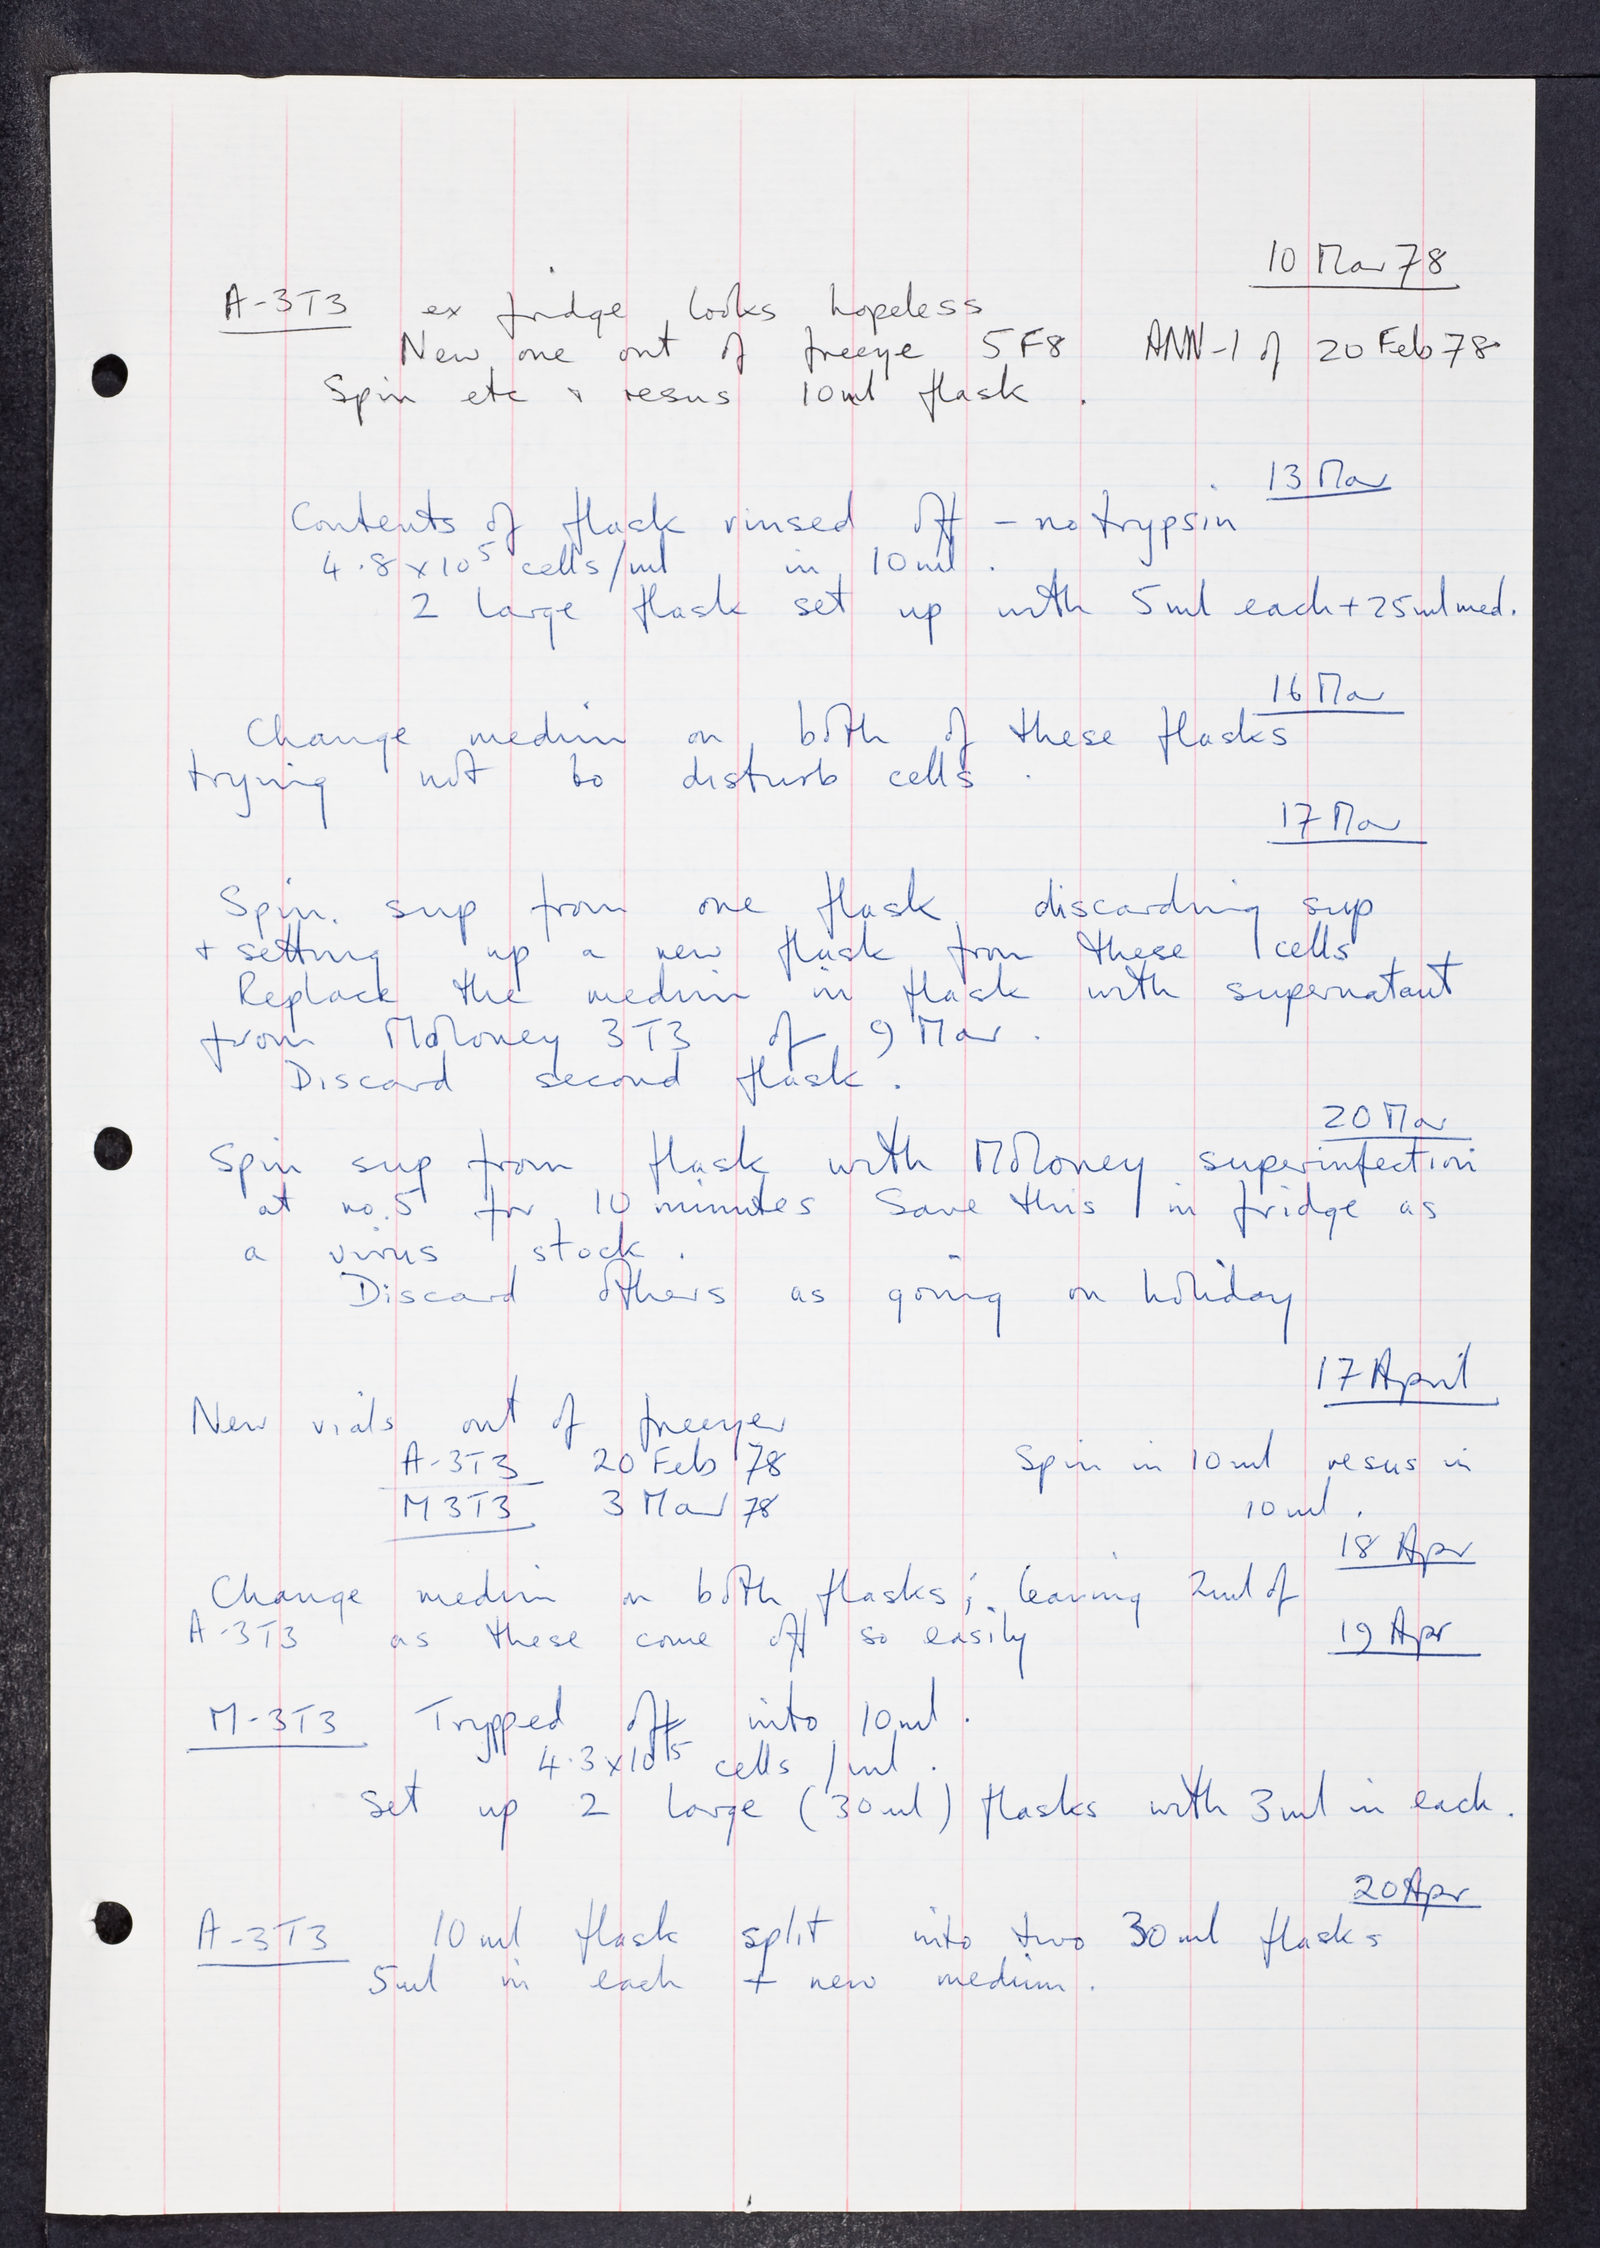 10 Mar 78
A-3T3 ex fridge looks hopeless
New one out of freeze 5F8 ANN-1 of 20 Feb 78
Spin etc + resus 10ml flask.
13 Mar
Contents of flask rinsed off - no trypsin
4.8 x 10⁵ cells/ml in 10ml.
2 large flask set up with 5ml each + 25ml med.
16 Mar
Change medium on both of these flasks
trying not to disturb cells.
17 Mar
Spin sup from one flask discarding sup
+ setting up a new flask from these cells
Replace the medium in flask with supernatant
from Moloney 3T3 of 9 Mar.
Discard second flask.
20 Mar
Spin sup from flask with Moloney superinfection
at no.5 for 10 minutes Save this in fridge as
a virus stock.
Discard others as going on holiday
17 April
New vials out of freezer
A-3T3 20 Feb 78 Spin in 10ml resus in
M3T3 3 Mar 78 10ml.
18 Apr
Change medium on both flasks; leaving 2ml of
A-3T3 as these come off so easily
19 Apr
M-3T3 Trypped off into 10ml.
4.3 x 10⁵ cells/ml.
Set up 2 large (30ml) flasks with 3ml in each.
20 Apr
A-3T3 10ml flask split into two 30ml flasks
5ml in each + new medium.